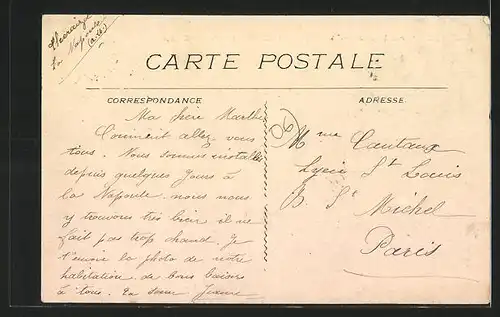 La Napoule
(A.M.)
CARTE POSTALE
CORRESPONDANCE
ADRESSE
Ma chère Marthe
Comment allez vous
tous. Nous sommes installés
depuis quelques jours à
la Napoule. nous nous
y trouvons très bien il ne
fait pas trop chaud. Je
t'envoie la photo de notre
habitation. de bons baisers
à tous. ta sœur Jeanne
06
Mme Cautaux
Lycée St Louis
B. St Michel
Paris